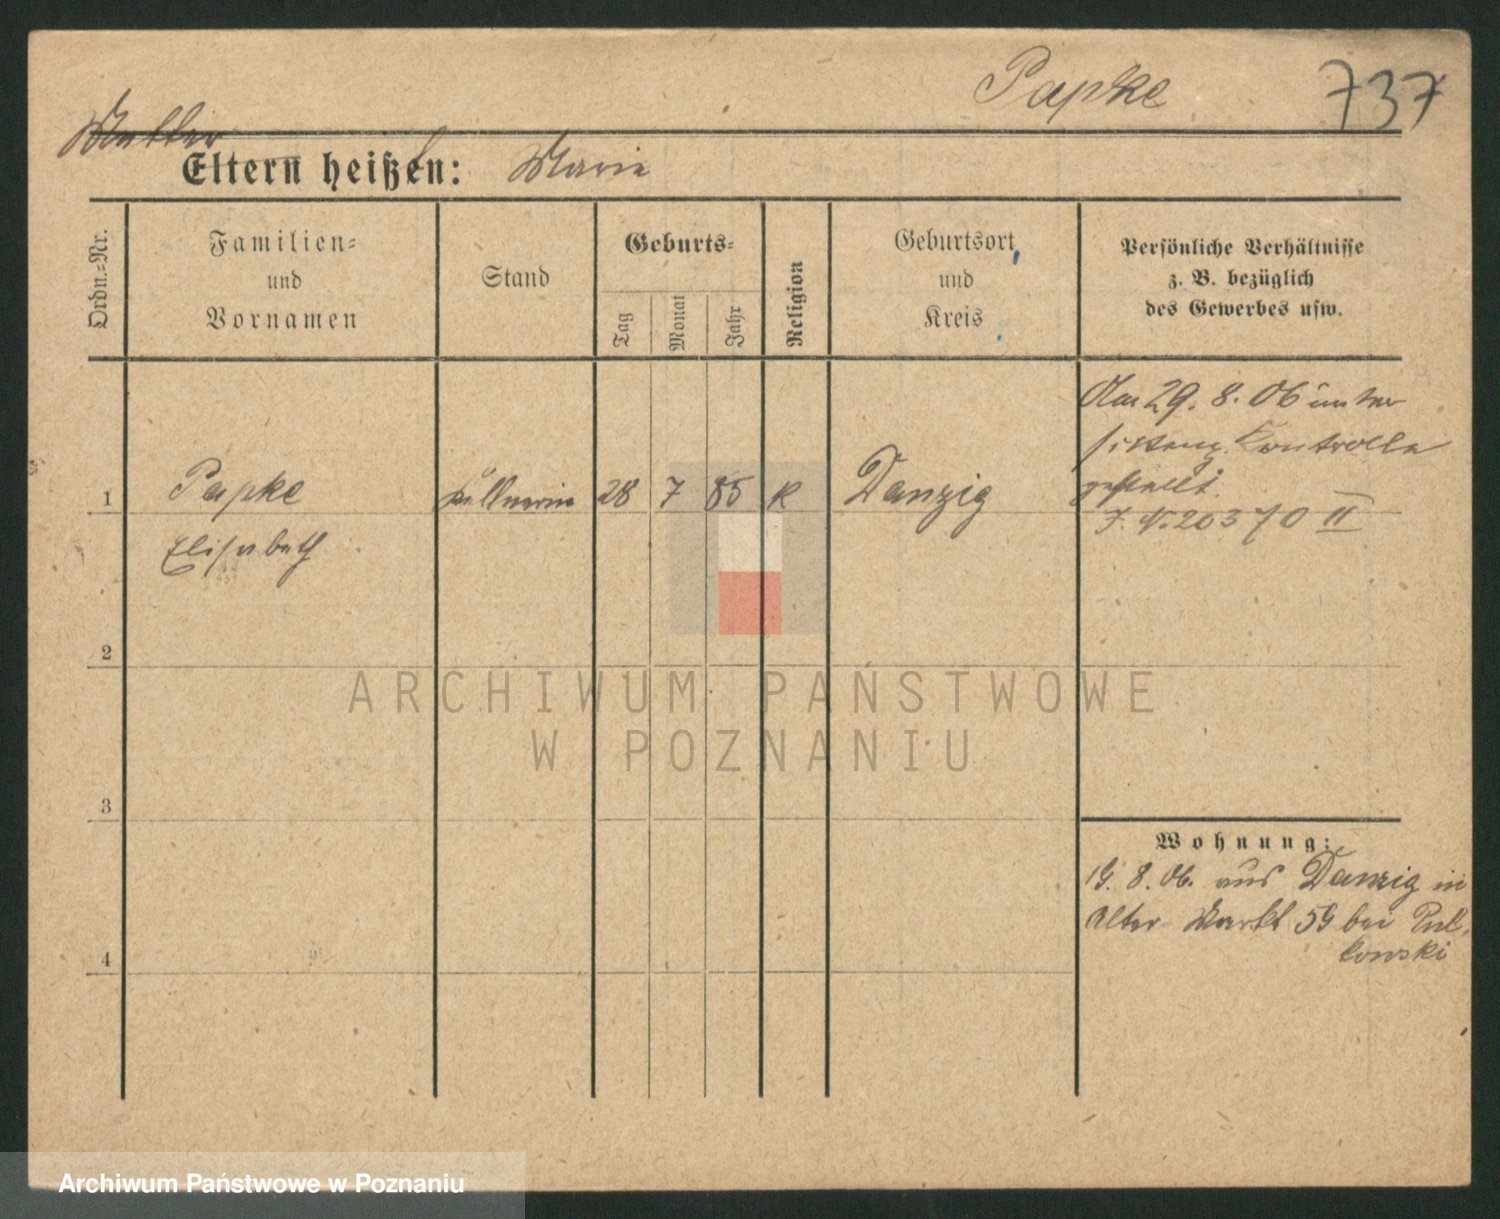 Papke 737
Mutter
Eltern heißen: Marie
Ordn.=Nr.
Familien=
und
Vornamen
Stand
Geburts=
Tag
Monat
Jahr
Religion
Geburtsort
und
Kreis
Persönliche Verhältnisse
z. B. bezüglich
des Gewerbes usw.
1 Papke Kellnerin 28 7 85 K Danzig
Elisabeth
Am 29. 8. 06 unter
sittenp. Kontrolle
gestellt.
J. N. 20370 II
2
3
4
Wohnung:
19. 8. 06. aus Danzig in
Alter Markt 59 bei Pul-
kowski
ARCHIWUM PAŃSTWOWE
W POZNANIU
Archiwum Państwowe w Poznaniu